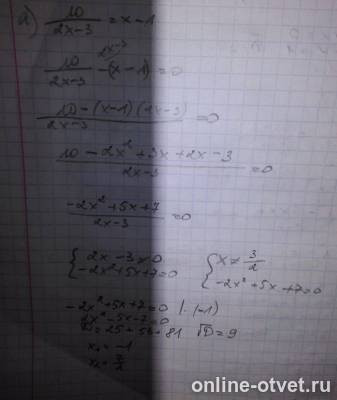 а) 10/(2x-3) = x-1
10/(2x-3) - (x-1) = 0
(10-(x-1)(2x-3))/(2x-3) = 0
(10-2x²+3x+2x-3)/(2x-3) = 0
(-2x²+5x+7)/(2x-3) = 0
{ 2x-3≠0 { x≠3/2
-2x²+5x+7=0 -2x²+5x+7=0
-2x²+5x+7=0 |·(-1)
2x²-5x-7=0
D=25+56=81 √D=9
x₁=-1
x₂=7/2
online-otvet.ru